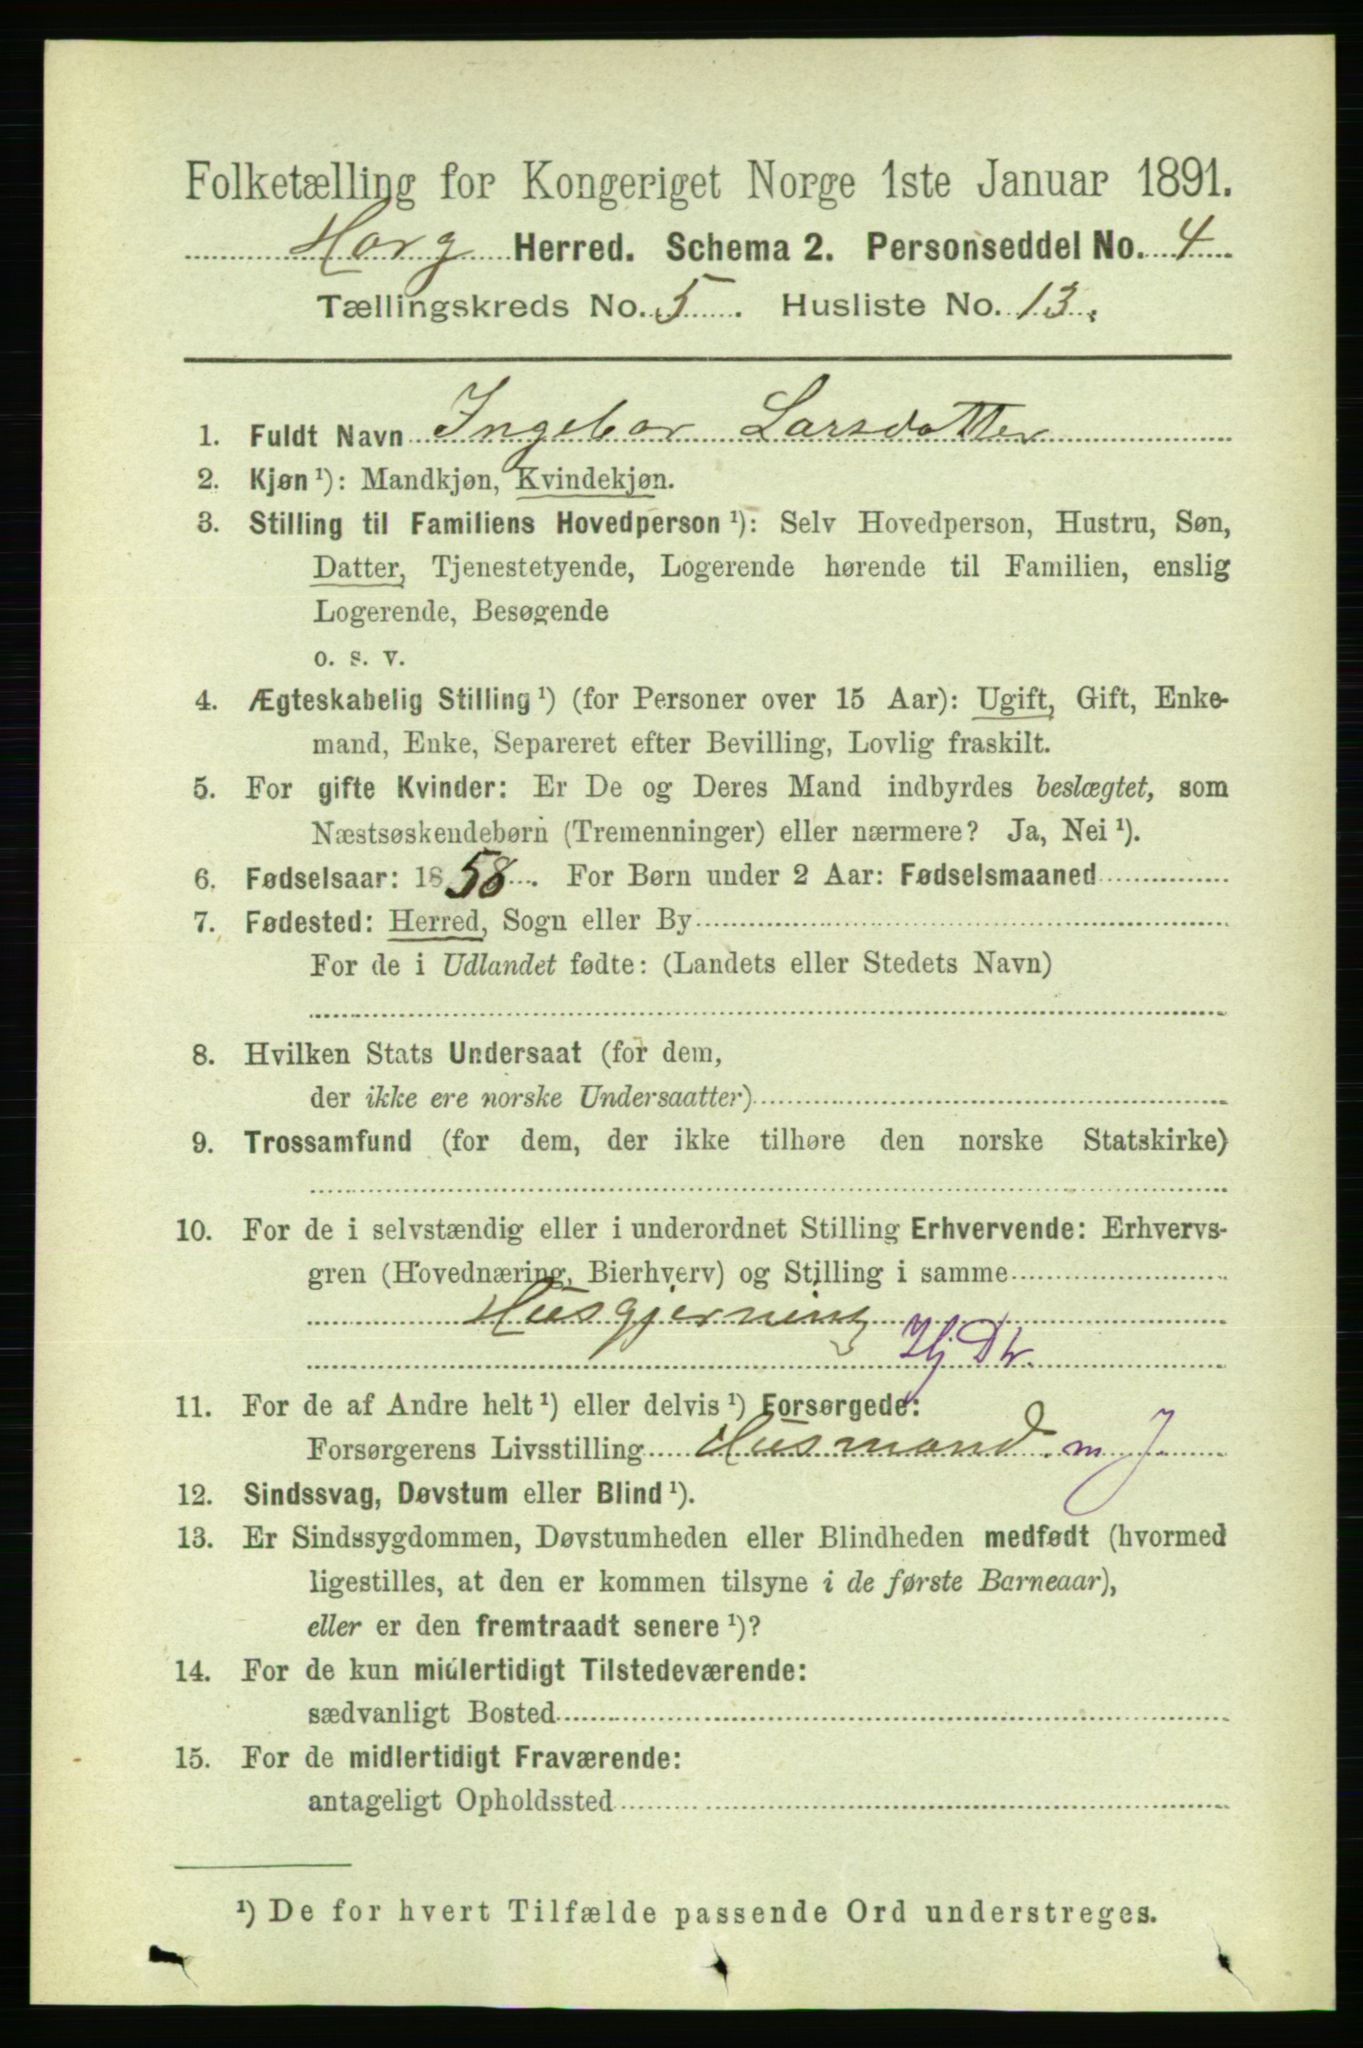 Folketælling for Kongeriget Norge 1ste Januar 1891.
Horg Herred. Schema 2. Personseddel No. 4
Tællingskreds No. 5. Husliste No. 13.
1. Fuldt Navn Ingebor Larsdatter
2. Kjøn ¹): Mandkjøn, Kvindekjøn.
3. Stilling til Familiens Hovedperson ¹): Selv Hovedperson, Hustru, Søn,
Datter, Tjenestetyende, Logerende hørende til Familien, enslig
Logerende, Besøgende
o. s. v.
4. Ægteskabelig Stilling ¹) (for Personer over 15 Aar): Ugift, Gift, Enke-
mand, Enke, Separeret efter Bevilling, Lovlig fraskilt.
5. For gifte Kvinder: Er De og Deres Mand indbyrdes beslægtet, som
Næstsøskendebørn (Tremenninger) eller nærmere? Ja, Nei ¹).
6. Fødselsaar: 1858. For Børn under 2 Aar: Fødselsmaaned
7. Fødested: Herred, Sogn eller By
For de i Udlandet fødte: (Landets eller Stedets Navn)
8. Hvilken Stats Undersaat (for dem,
der ikke ere norske Undersaatter)
9. Trossamfund (for dem, der ikke tilhøre den norske Statskirke)
10. For de i selvstændig eller i underordnet Stilling Erhvervende: Erhvervs-
gren (Hovednæring, Bierhverv) og Stilling i samme
Husgjerning
Hj. Dtr.
11. For de af Andre helt ¹) eller delvis ¹) Forsørgede:
Forsørgerens Livsstilling Husmand m J
12. Sindssvag, Døvstum eller Blind ¹).
13. Er Sindssygdommen, Døvstumheden eller Blindheden medfødt (hvormed
ligestilles, at den er kommen tilsyne i de første Barneaar),
eller er den fremtraadt senere ¹)?
14. For de kun midlertidigt Tilstedeværende:
sædvanligt Bosted
15. For de midlertidigt Fraværende:
antageligt Opholdssted
¹) De for hvert Tilfælde passende Ord understreges.